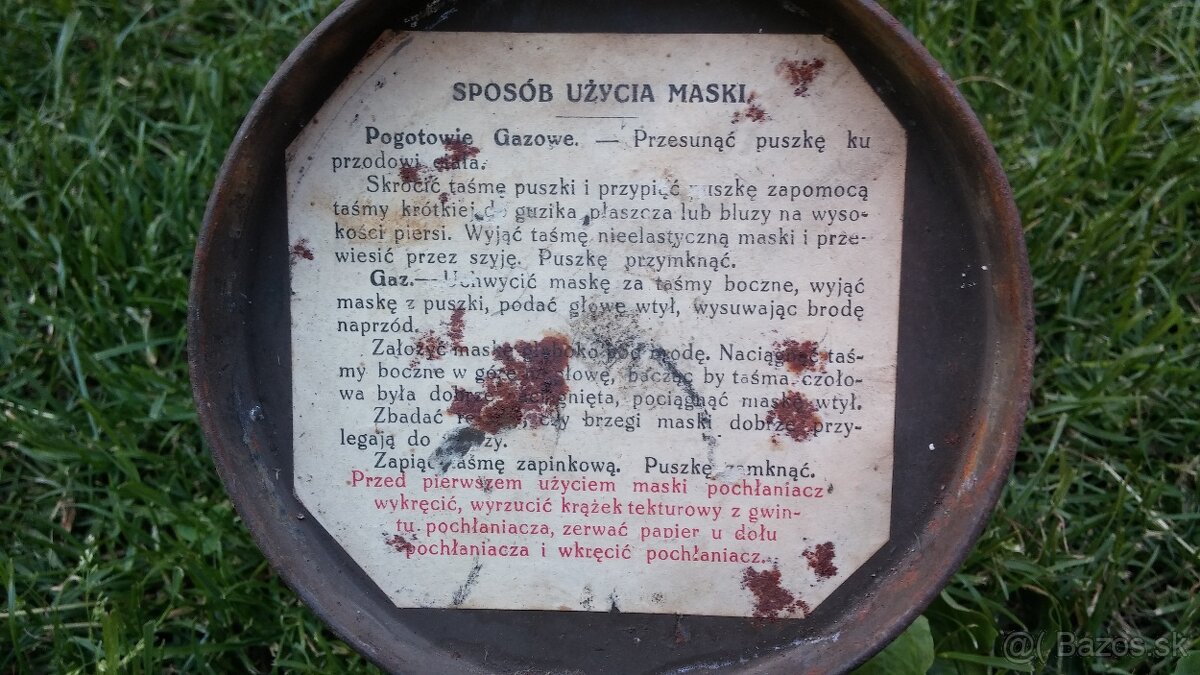 SPOSÓB UŻYCIA MASKI
Pogotowie Gazowe. — Przesunąć puszkę ku
przodowi ciała.
Skrócić taśmę puszki i przypiąć puszkę zapomocą
taśmy krótkiej do guzika płaszcza lub bluzy na wyso-
kości piersi. Wyjąć taśmę nieelastyczną maski i prze-
wiesić przez szyję. Puszkę przymknąć.
Gaz.— Uchwycić maskę za taśmy boczne, wyjąć
maskę z puszki, podać głowę wtył, wysuwając brodę
naprzód.
Założyć maskę głęboko pod brodę. Naciągnąć taś-
my boczne w górę głowę, bacząc by taśma czoło-
wa była dobrze pociągnąć maskę wtył.
Zbadać czy brzegi maski dobrze przy-
legają do
Zapiąć taśmę zapinkową. Puszkę zamknąć.
Przed pierwszem użyciem maski pochłaniacz
wykręcić, wyrzucić krążek tekturowy z gwin-
tu pochłaniacza, zerwać papier u dołu
pochłaniacza i wkręcić pochłaniacz.
Bazos.sk